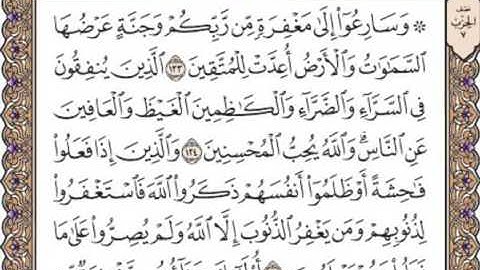 نصف
الحزب
٧
۞ وَسَارِعُوٓاْ إِلَىٰ مَغْفِرَةٍ مِّن رَّبِّكُمْ وَجَنَّةٍ عَرْضُهَا
ٱلسَّمَٰوَٰتُ وَٱلْأَرْضُ أُعِدَّتْ لِلْمُتَّقِينَ ١٣٣ ٱلَّذِينَ يُنفِقُونَ
فِي ٱلسَّرَّآءِ وَٱلضَّرَّآءِ وَٱلْكَٰظِمِينَ ٱلْغَيْظَ وَٱلْعَافِينَ
عَنِ ٱلنَّاسِۗ وَٱللَّهُ يُحِبُّ ٱلْمُحْسِنِينَ ١٣٤ وَٱلَّذِينَ إِذَا فَعَلُواْ
فَٰحِشَةً أَوْ ظَلَمُوٓاْ أَنفُسَهُمْ ذَكَرُواْ ٱللَّهَ فَٱسْتَغْفَرُواْ
لِذُنُوبِهِمْ وَمَن يَغْفِرُ ٱلذُّنُوبَ إِلَّا ٱللَّهُ وَلَمْ يُصِرُّواْ عَلَىٰ مَا